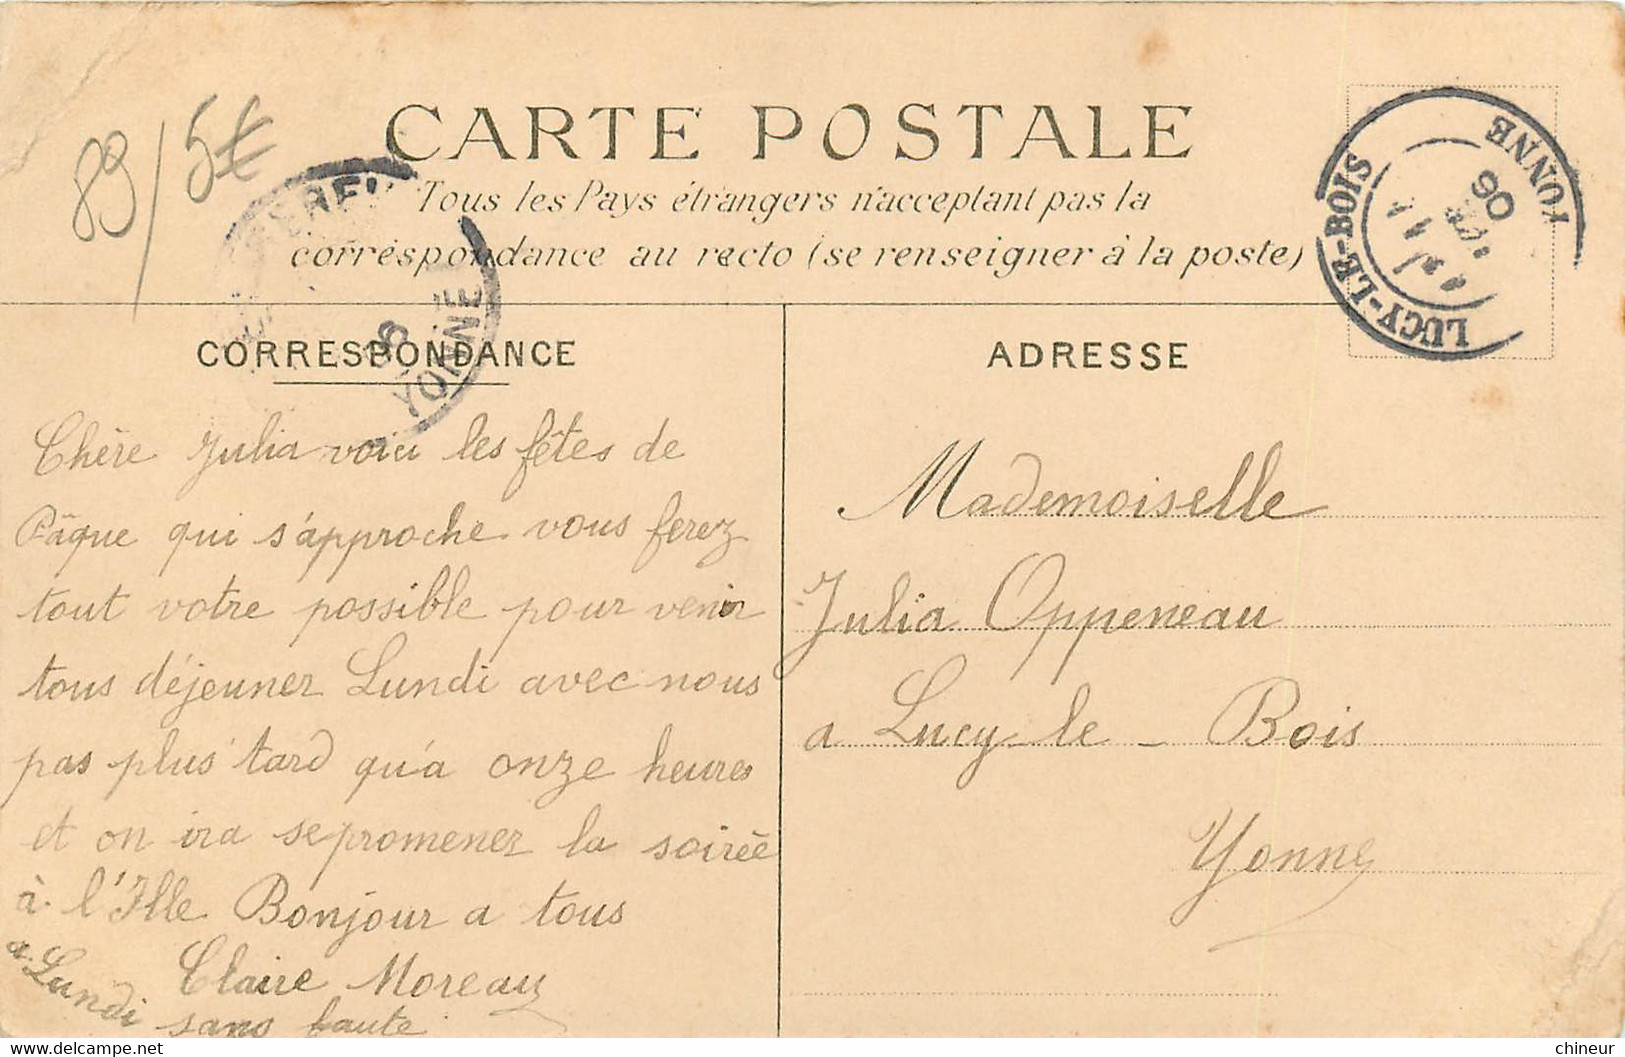 89/5€
CARTE POSTALE
Tous les Pays étrangers n'acceptant pas la
correspondance au recto (se renseigner à la poste)
LUCY-LE-BOIS
YONNE
11
06
YONNE
CORRESPONDANCE
ADRESSE
Chère Julia voici les fêtes de
Pâque qui s'approche vous ferez
tout votre possible pour venir
tous déjeuner Lundi avec nous
pas plus tard qu'à onze heures
et on ira se promener la soirée
à l'Ille Bonjour a tous
Claire Moreau
a Lundi
sans faute
Mademoiselle
Julia Oppeneau
a Lucy-le-Bois
Yonne
chineur